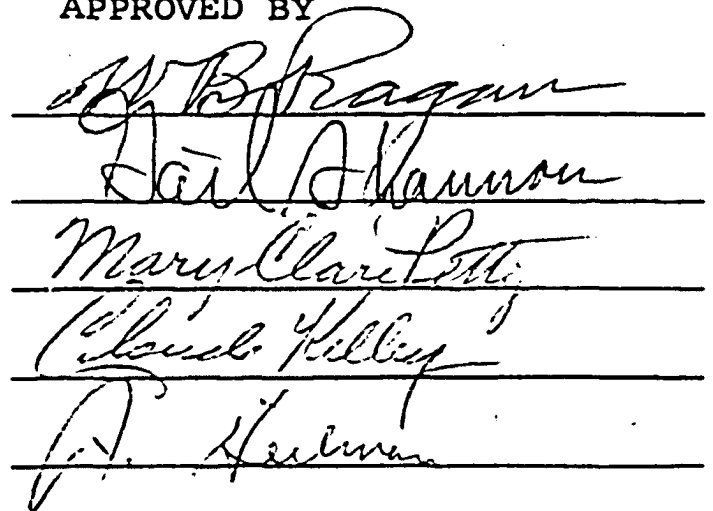 APPROVED BY
W B Ragan
Gail Shannon
Mary Clare Petty
Claude Kelley
A. Heilman